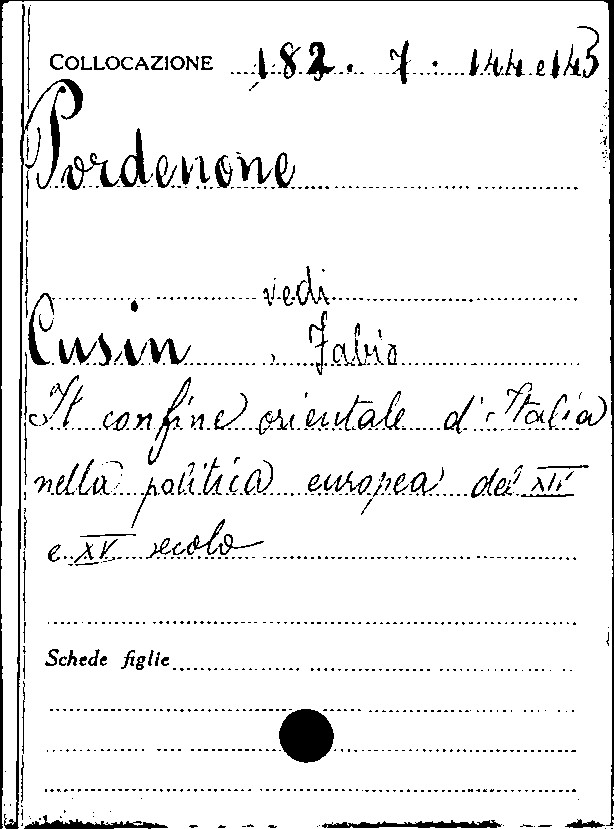 COLLOCAZIONE 182. 7. 144 e 145
Pordenone
vedi
Cusin, Fabio
Il confine orientale d'Italia
nella politica europea del XIV
e XV secolo
Schede figlie